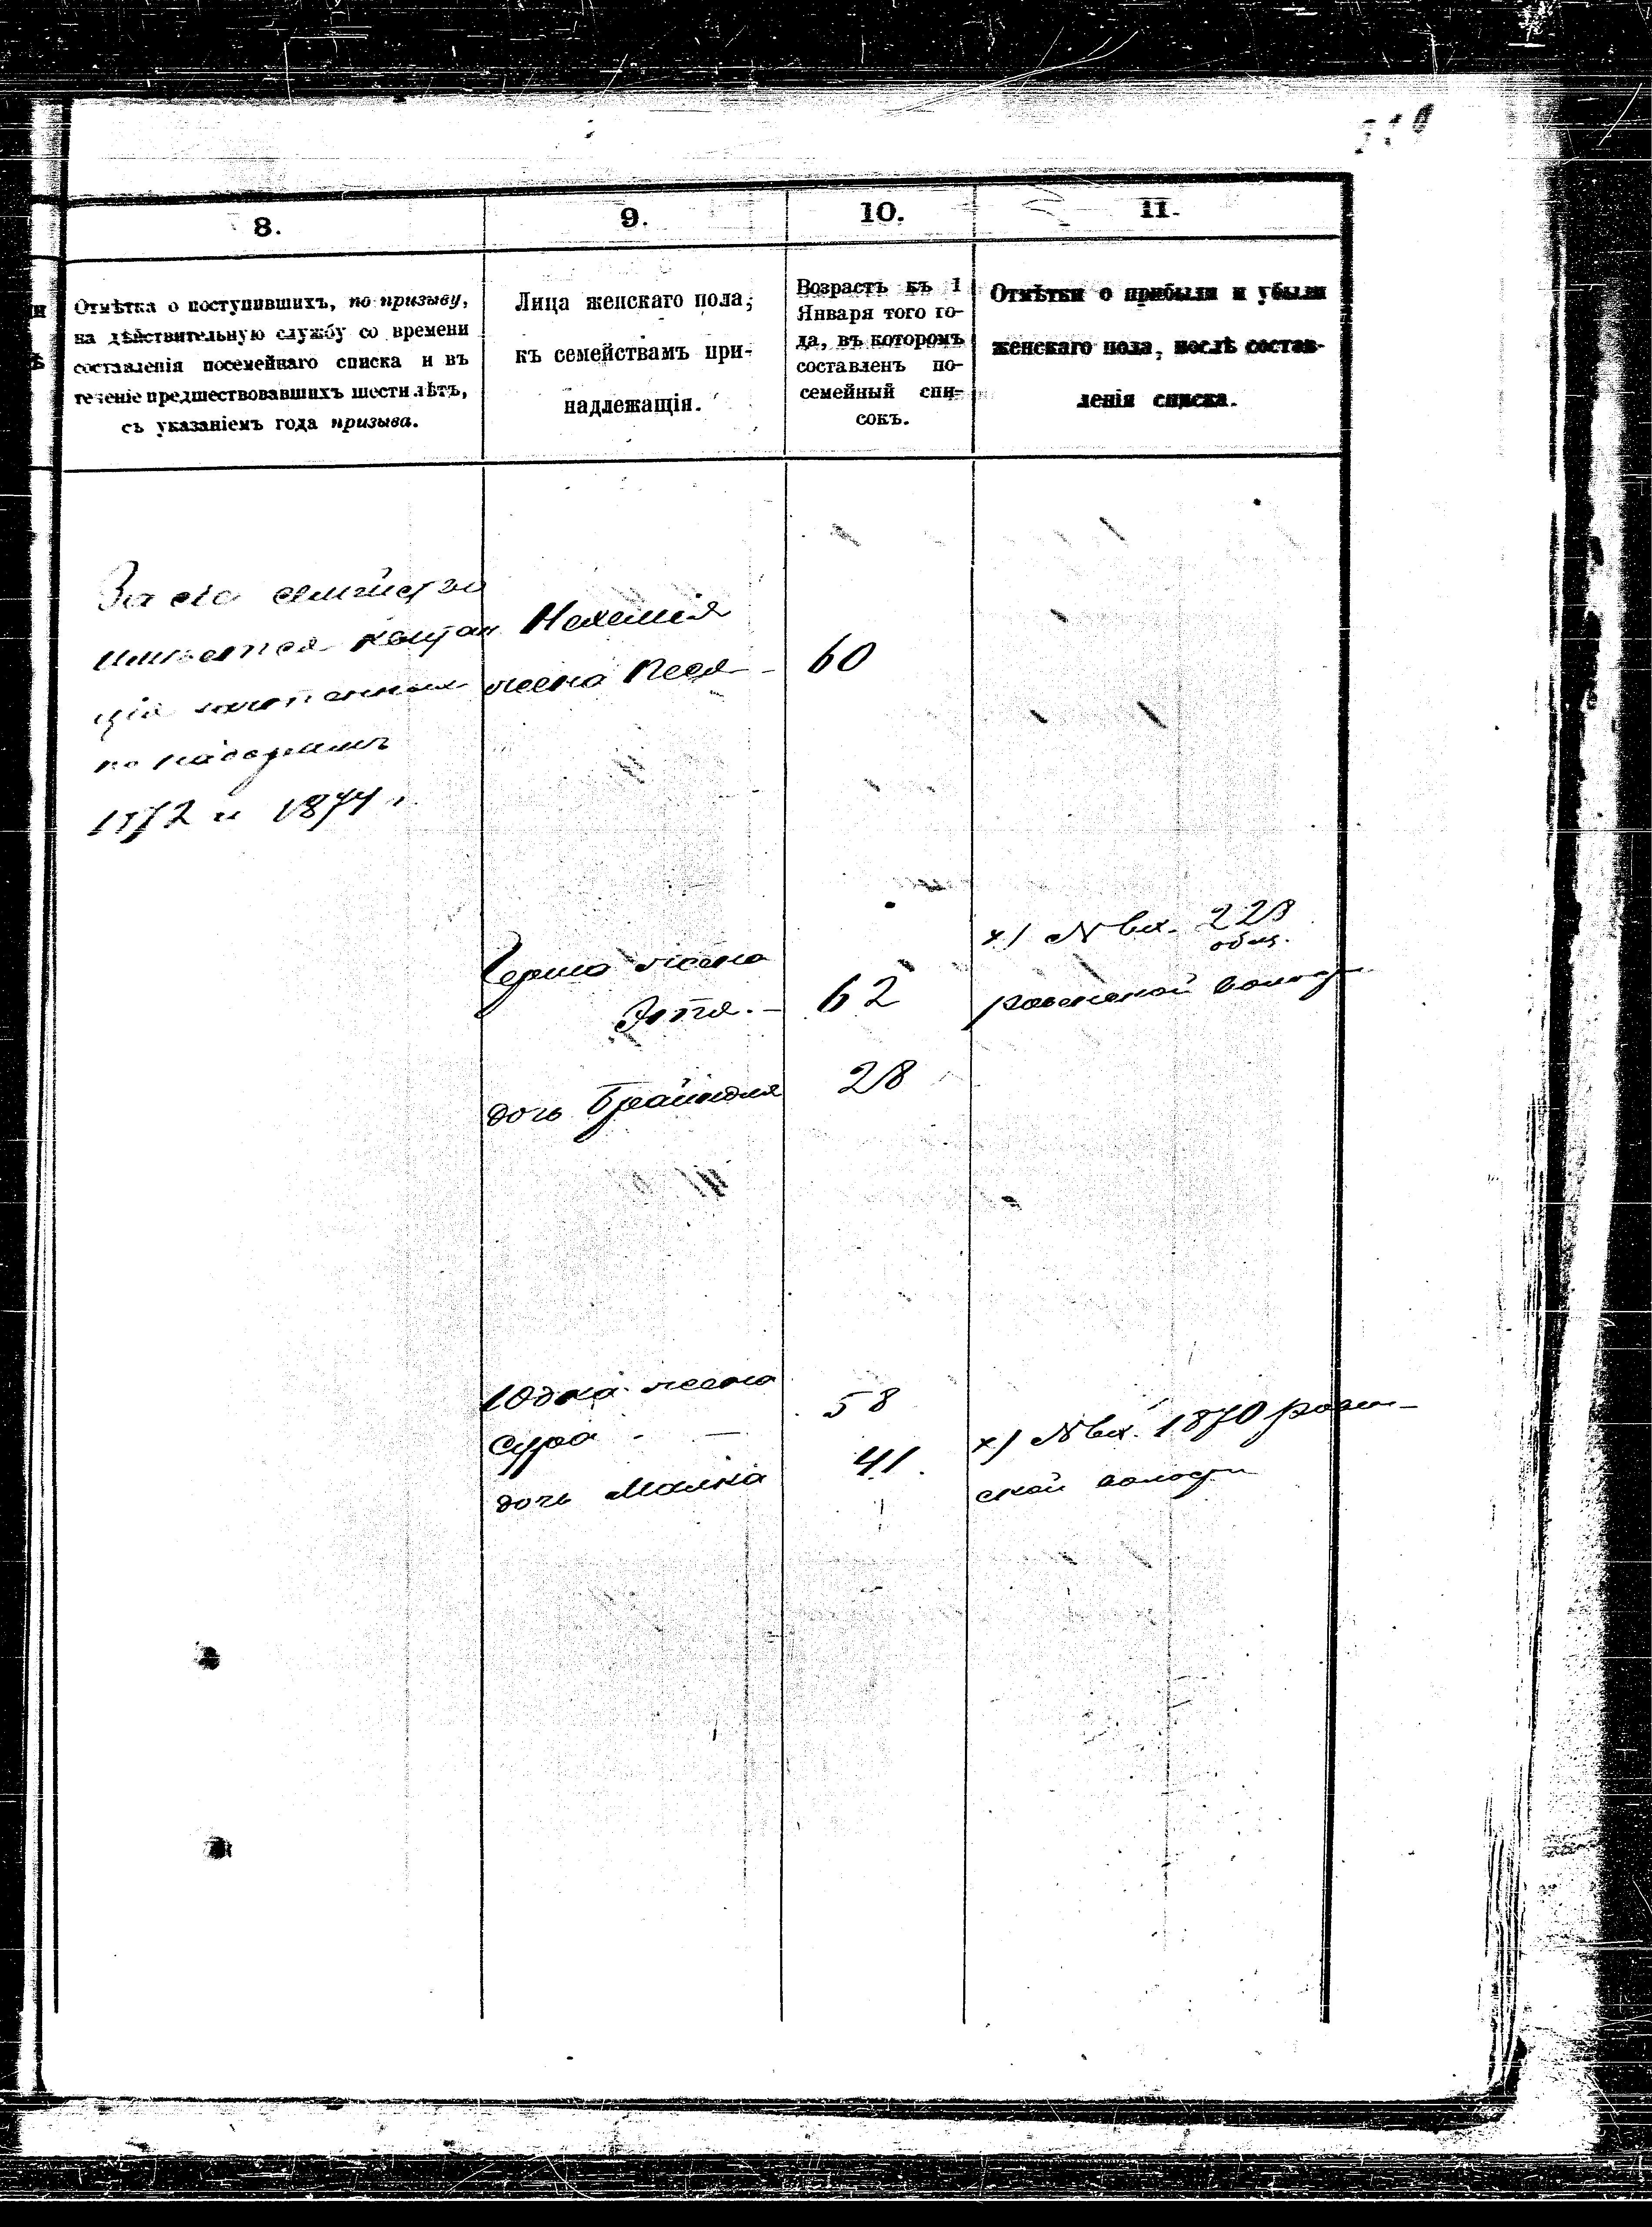 8.
9.
10.
11.
Отмѣтка о поступившихъ, по призыву,
на дѣйствительную службу со времени
составленія посемейнаго списка и въ
теченіе предшествовавшихъ шести лѣтъ,
съ указаніемъ года призыва.
Лица женскаго пола,
къ семействамъ при-
надлежащія.
Возрастъ къ 1
Января того го-
да, въ которомъ
составленъ по-
семейный спи-
сокъ.
Отмѣтки о прибыли и убыли
женскаго пола, послѣ состав-
ленія списка.
За сіе семейство
имѣется квитан
ція
по наборамъ
1872 и 1874 г.
Нехемія
жена Песя - 60
Герша жена
Этля. - 62
дочь Брайндля 28
х) № Вх. 223
общ.
волости
Юдка жена
Сура - 58
дочь Малка 41.
х) № Вх. 1870
ской волости